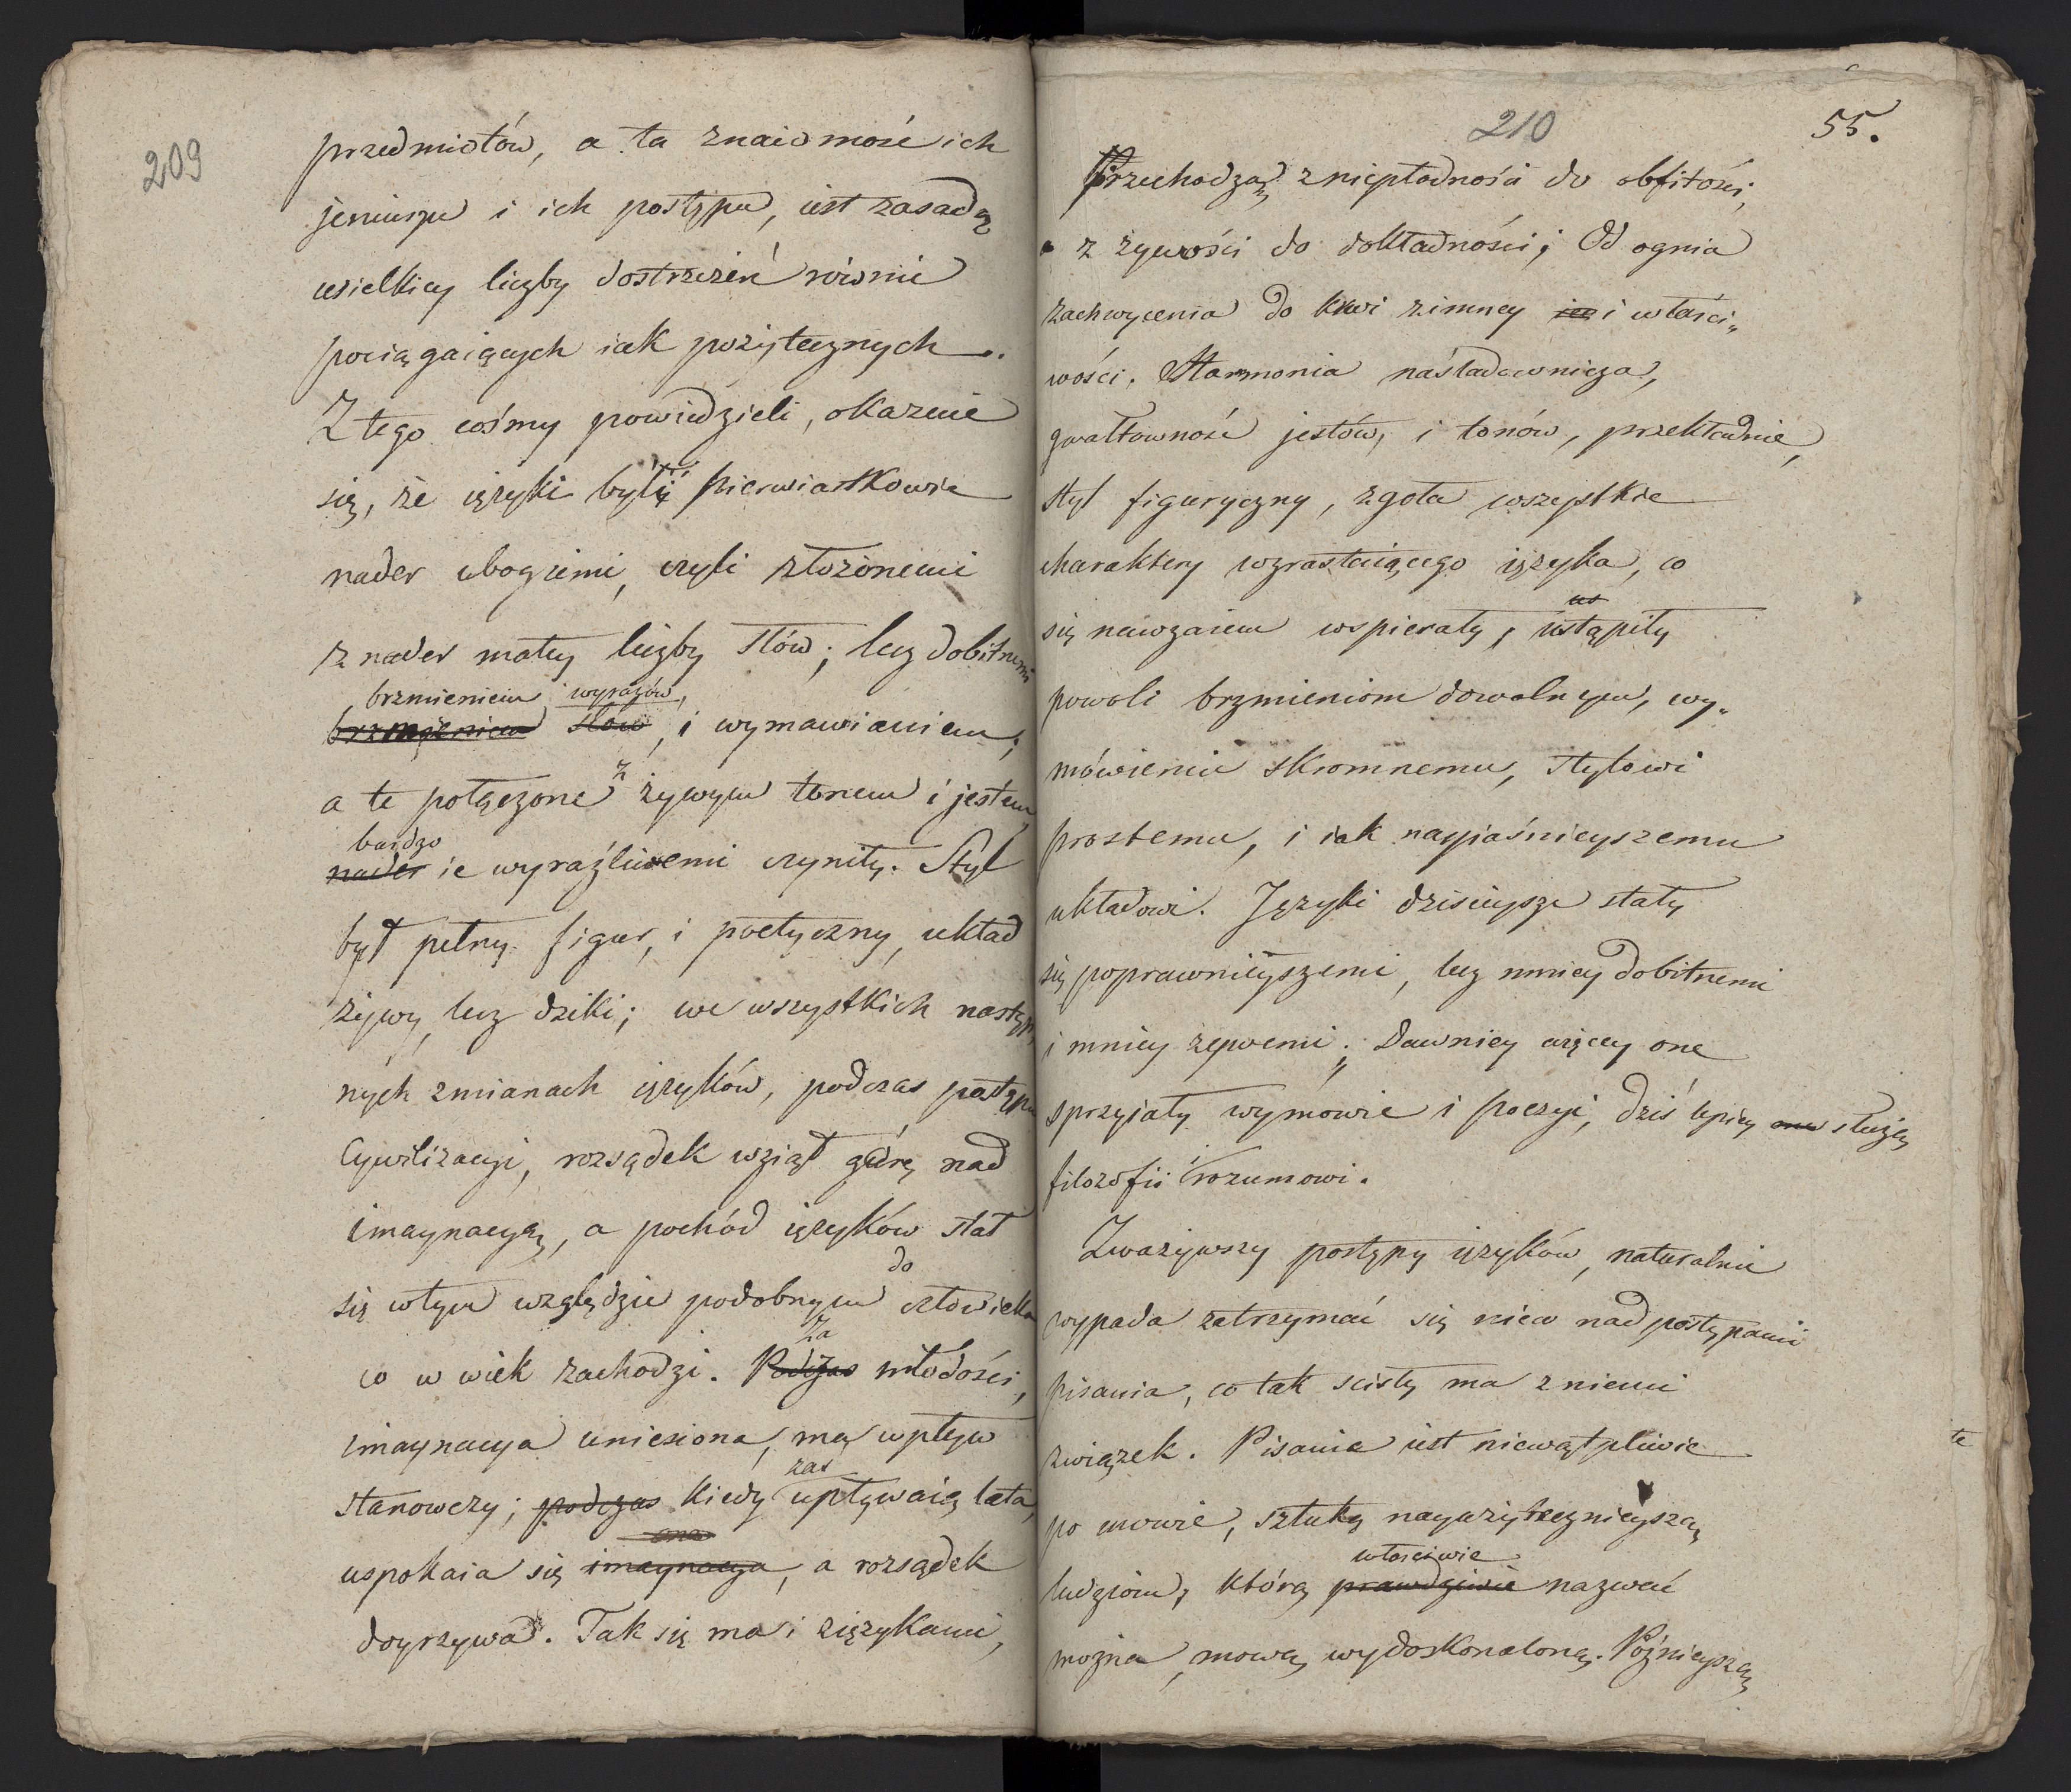 209
przedmiotów, a ta znaiomość ich
jeniuszu i ich postępu, iest zasadą
wielkiey liczby dostrzeżeń równie
pociągaiących iak pożytecznych.
Z tego cośmy powiedzieli, okazuie
się, że ięzyki były pierwiastkowie
nader ubogiemi, czyli złożonemi
z nader małey liczby słów; lecz dobitnemi
brzmieniem wyrazów,
brzmieniem słów, i wymawianiem;
a te połączone z żywym tonem i jestem,
bardzo
nader ie wyraźliwemi czyniły. Styl
był pełny figur, i poetyczny, układ
żywy, lecz dziki; we wszystkich następ„
nych zmianach ięzyków, podczas postępu
Cywilizacyi, rozsądek wziął górę nad
imaynacyą, a pochód ięzyków stał
się w tym względzie podobnym do człowieka
co w wiek zachodzi. Za
Podczas młodości,
imaynacya uniesiona, ma wpływ
stanowczy; podczas kiedy zas upływaią lata,
ona
uspokaia się imaynacya, a rozsądek
doyrzywa. Tak się ma i z ięzykami,
210
55.
Przechodzą z niepłodności do obfitości,
z żywości do dokładności; Od ognia
zachwycenia do krwi zimney i właści„
wości. Harmonia naśladownicza,
gwałtowność jestów, i tonów, przekładnie,
styl figuryczny, zgoła wszystkie
charaktery wzrastaiącego ięzyka, co
us
się nawzaiem wspierały, ustąpiły
powoli brzmieniom dowolnym, wy„
mówieniu skromnemu, stylowi
prostemu, i iak nayjaśnieyszemu
układowi. Języki dzisieysze stały
się poprawnieyszemi, lecz mniey dobitnemi
i mniey żywemi; Dawniey więcey one
sprzyjały wymówie i poezyi, dziś lepiey służą
filozofii i rozumowi.
Zważywszy postępy ięzyków, naturalnie
wypada zatrzymać się nieco nad postępami
pisania, co tak scisły ma z niemi
związek. Pisanie iest niewątpliwie
po mowie, sztuką nayużytecznieyszą
właściwie
ludziom, którą prawdziwie nazwać
można, mową wydoskonaloną. Późnieyszą
te